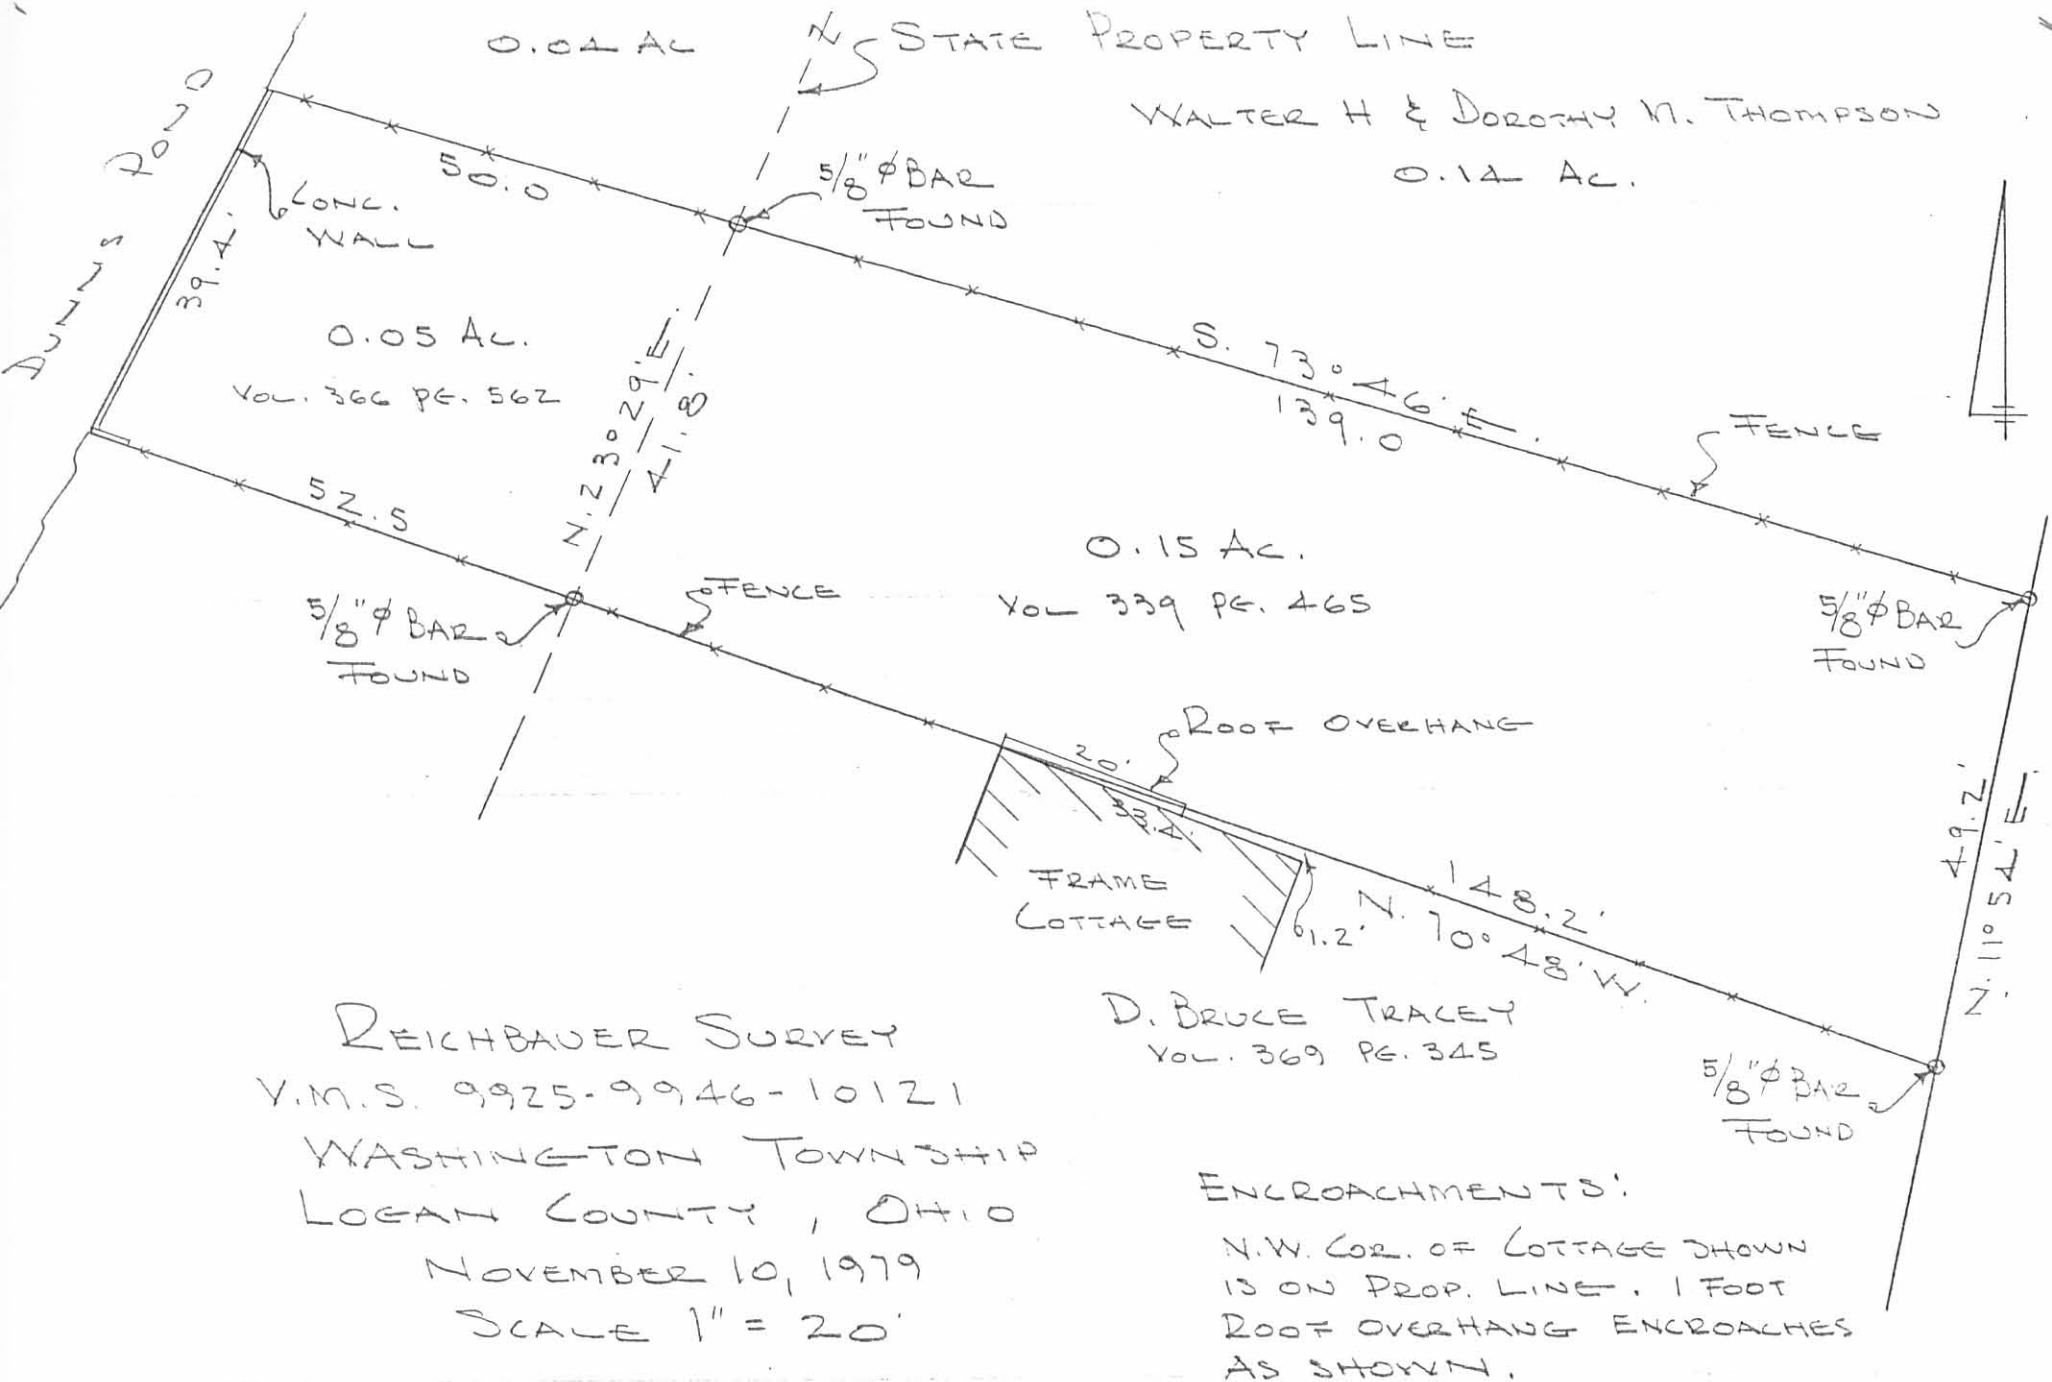 0.04 AC
STATE PROPERTY LINE
WALTER H & DOROTHY M. THOMPSON
0.14 AC.
DUNNS POND
50.0
5/8"φ BAR
FOUND
CONC.
WALL
39.4'
0.05 AC.
VOL. 366 PG. 562
N. 23° 29' E.
41.8'
S. 73° 46' E.
139.0
FENCE
52.5
0.15 AC.
VOL 339 PG. 465
5/8"φ BAR
FOUND
FENCE
5/8"φ BAR
FOUND
ROOF OVERHANG
20'
33.4'
FRAME
COTTAGE
1.2'
148.2'
N. 70° 48' W.
49.2'
N. 11° 54' E.
D. BRUCE TRACEY
VOL. 369 PG. 345
5/8"φ BAR
FOUND
REICHBAUER SURVEY
V.M.S. 9925-9946-10121
WASHINGTON TOWNSHIP
LOGAN COUNTY, OHIO
NOVEMBER 10, 1979
SCALE 1" = 20'
ENCROACHMENTS:
N.W. COR. OF COTTAGE SHOWN
IS ON PROP. LINE. 1 FOOT
ROOF OVERHANG ENCROACHES
AS SHOWN.